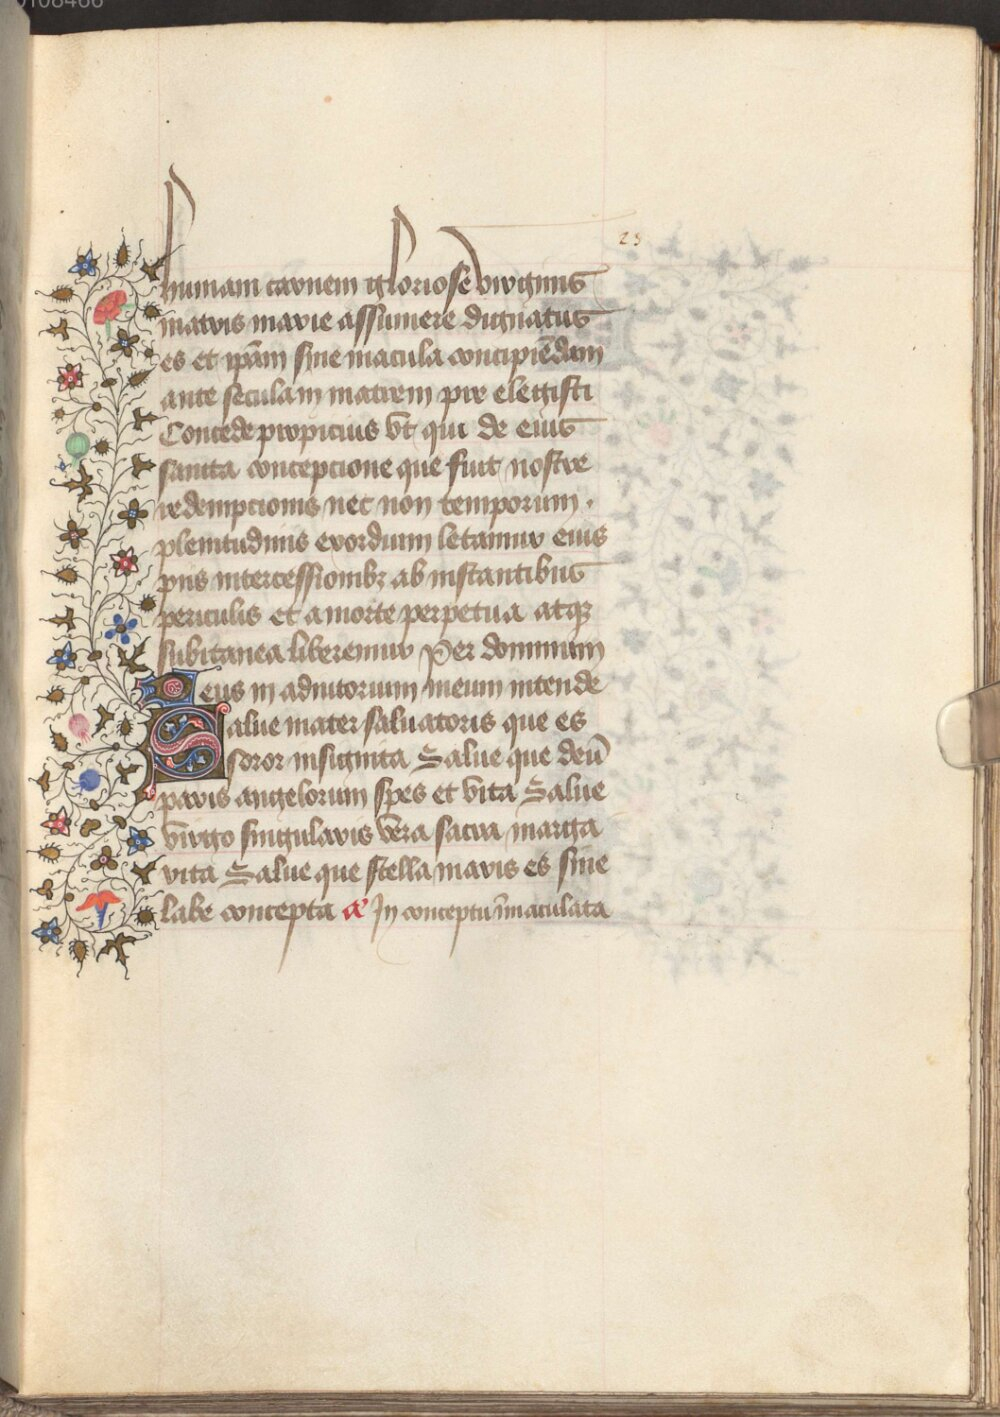 0108466
23
humam carnem gloriose virginis
matris marie assumere dignatus
es et ip̄am sine macula concipiēdam
ante seculam matrem pre elegisti
Concede propicius vt qui de eius
sancta concepcione que fuit nostre
redempcionis nec non temporum .
plenitudinis exordium letamur eius
piis intercessionibꝫ ab instantibus
periculis et a morte perpetua atqꝫ
subitanea liberemur Per dominum
Deus in adiutorium meum intende
Salue mater saluatoris que es
soror insignita Salue que deū
paris angelorum spes et vita Salue
virgo singularis vera sacra marga
rita Salue que stella maris es sine
labe concepta a᷎ In conceptu īmaculata